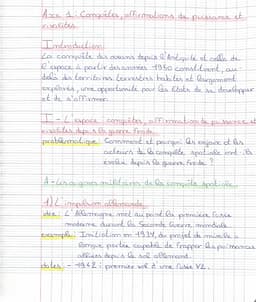 Axe 1 : Conquêtes, affirmations de puissance et
rivalités.
Introduction :
La conquête des océans depuis l'Antiquité et celle de
l'espace à partir des années 1950 constituent, au-
delà des territoires terrestres habités et largement
explorés, une opportunité pour les Etats de se développer
et de s'affirmer.
I - L'espace : conquêtes, affirmations de puissance et
rivalités depuis la guerre froide.
problématique : Comment et pourquoi les enjeux et les
acteurs de la conquête spatiale ont-ils
évolué depuis la guerre froide ?
A - Les origines militaires de la conquête spatiale.
1) L'impulsion allemande.
idée : L'Allemagne met au point la première fusée
moderne durant la Seconde Guerre mondiale
exemple : Imitation en 1939, du projet de missile à
longue portée capable de frapper les puissances
alliées depuis le sol allemand.
dates : - 1942 : premier vol d'une fusée V2.